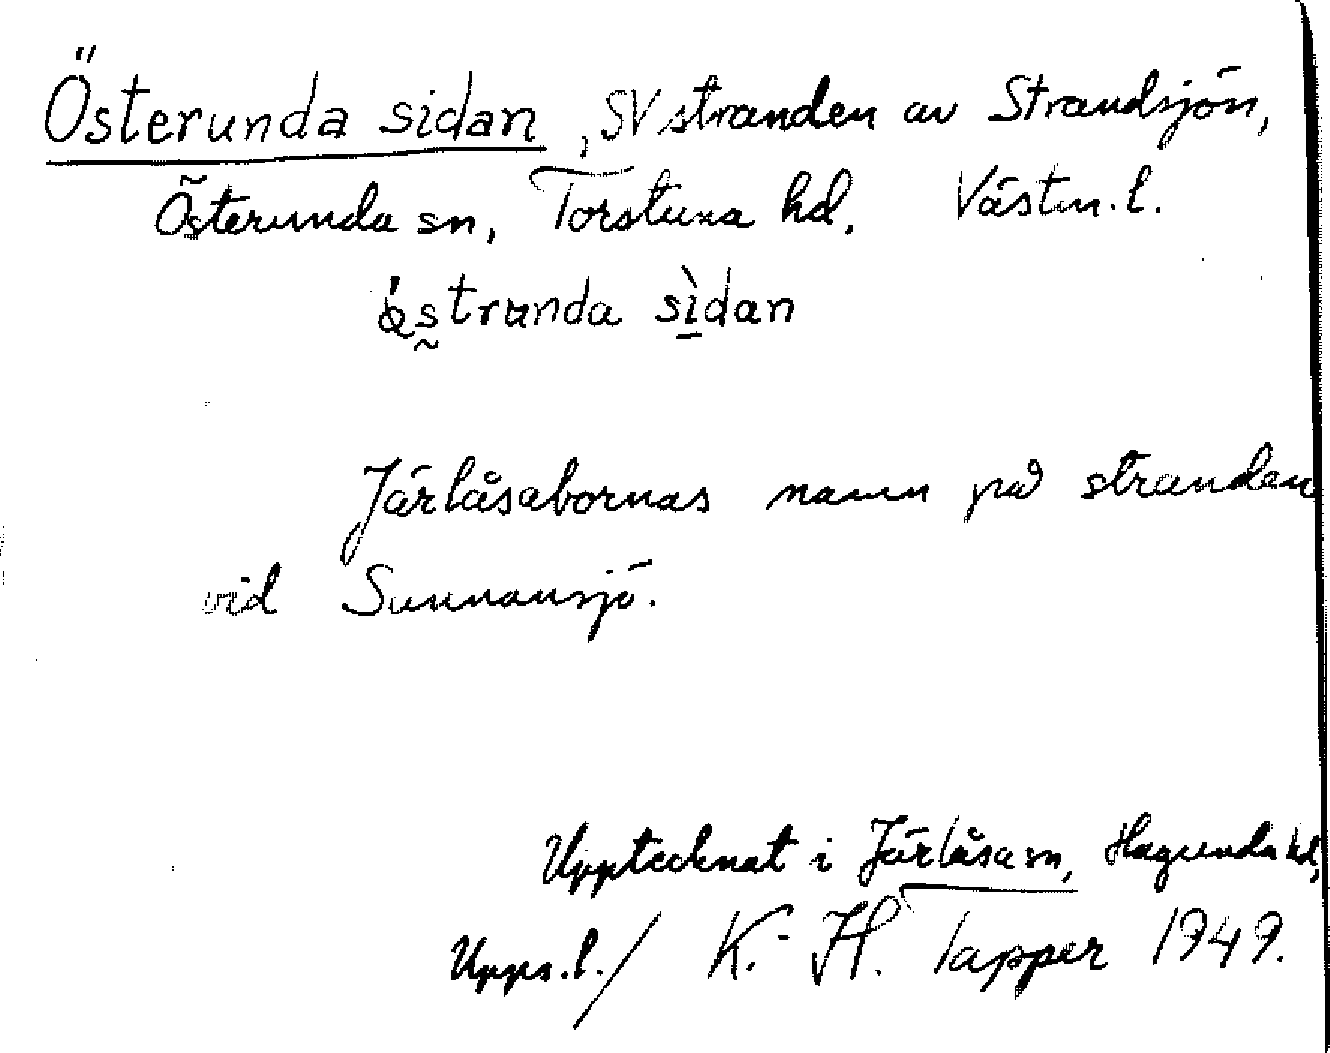 Österunda sidan, SV stranden av Strandsjön,
Österunda sn, Torstuna hd, Västm. l.
sìdan
Järlåsabornas namn på stranden
vid Sunnansjö.
Upptecknat i Järlåsa sn, Hagunda hd,
Upps. l. / K.-H. Tapper 1949.